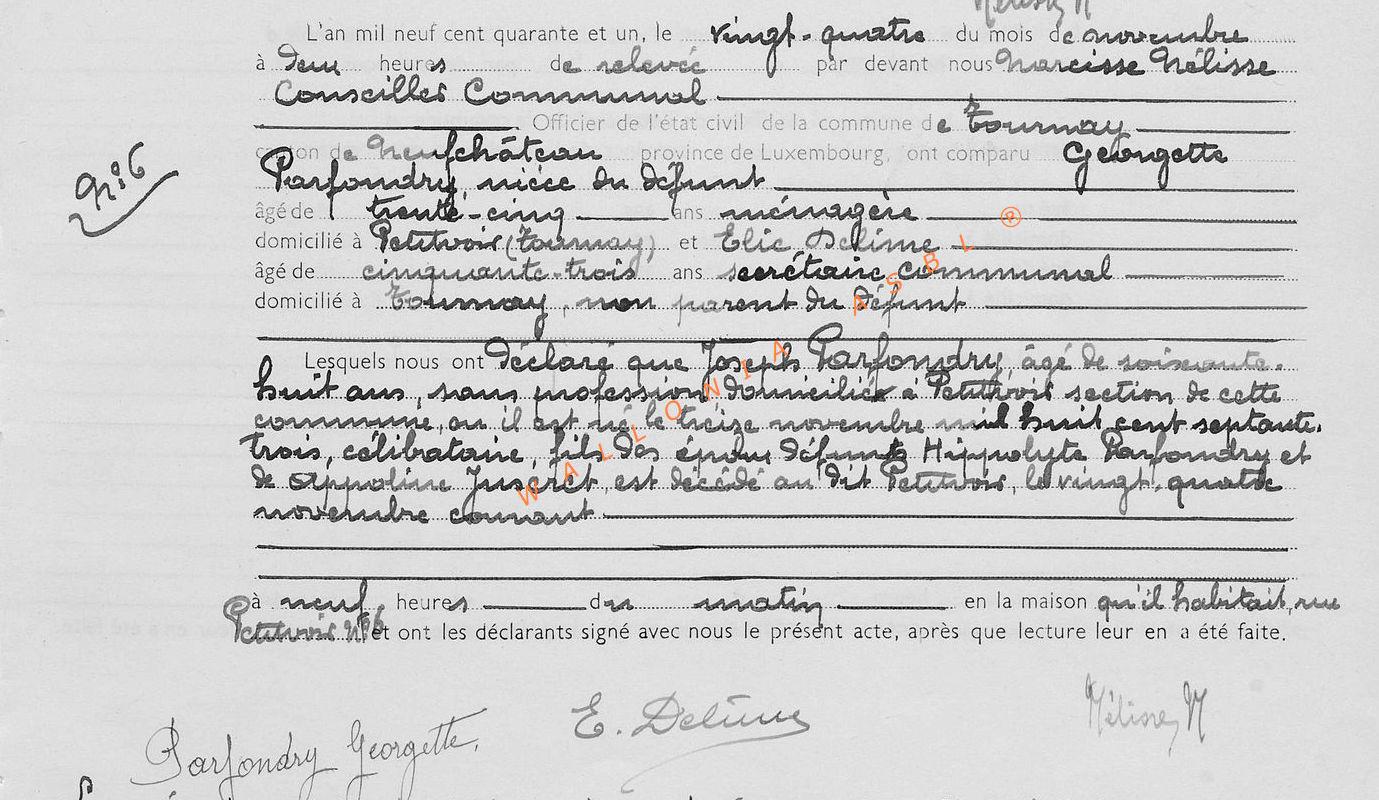 L'an mil neuf cent quarante et un, le vingt-quatre du mois de novembre
à deux heures de relevée par devant nous Narcisse Mélisse
Conseiller Communal
Officier de l'état civil de la commune de Tournay
canton de Neufchâteau province de Luxembourg, ont comparu Georgette
N°6
Parfondry, nièce du défunt
âgé de trente-cinq ans ménagère
domicilié à Petitvoir (Tournay) et Elie Delime
âgé de cinquante-trois ans secrétaire communal
domicilié à Tournay, non parent du défunt
Lesquels nous ont déclaré que Joseph Parfondry, âgé de soixante-
huit ans, sans profession, domicilié à Petitvoir section de cette
commune, où il est né le treize novembre mil huit cent septante-
trois, célibataire, fils des époux défunts Hippolyte Parfondry et
de Appoline Juseret, est décédé au dit Petitvoir, le vingt-quatre
novembre courant
à neuf heures du matin en la maison qu'il habitait, rue
Petitvoir N°6 et ont les déclarants signé avec nous le présent acte, après que lecture leur en a été faite.
WALLONIA ASBL ®
E. Delime
Mélisse, N
Parfondry Georgette,